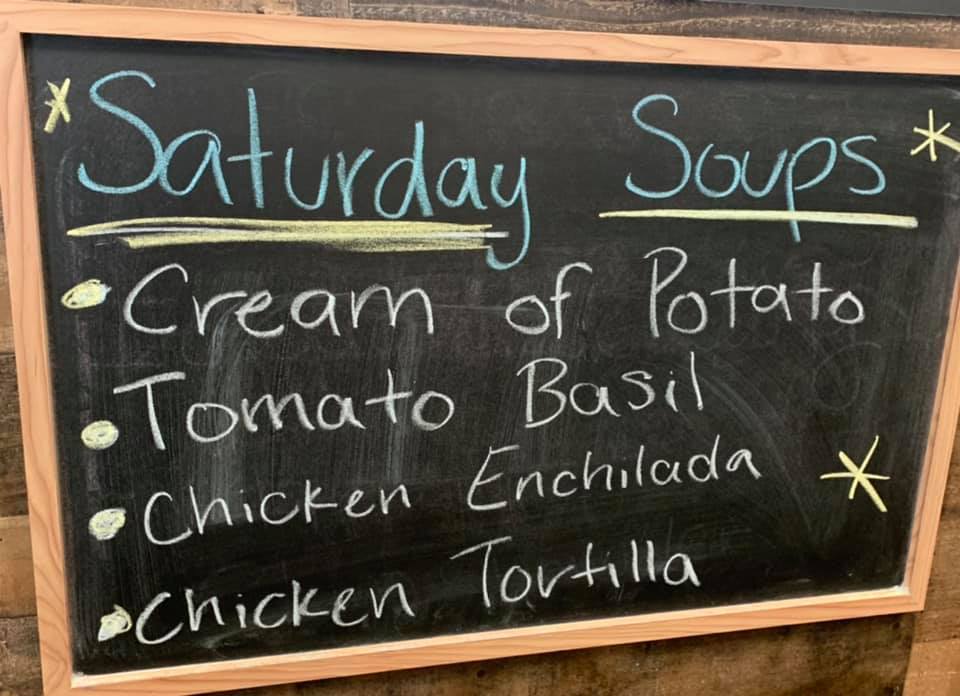 Saturday Soups
• Cream of Potato
• Tomato Basil
• Chicken Enchilada
• Chicken Tortilla